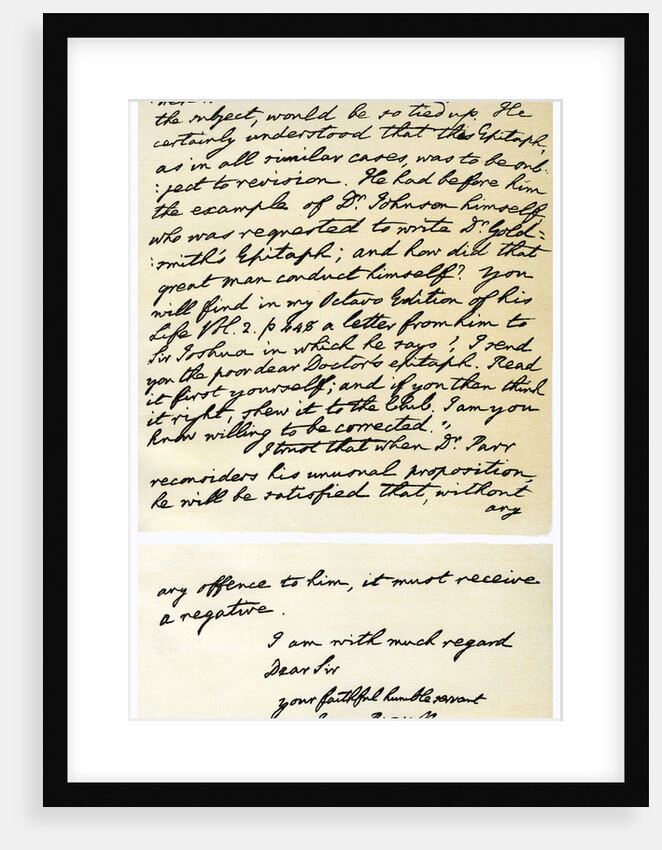 the subject, would be so tied up. He
certainly understood that this Epitaph,
as in all similar cases, was to be sub-
:ject to revision. He had before him
the example of Dr. Johnson himself
who was requested to write Dr. Gold=
:smith's Epitaph; and how did that
great man conduct himself? You
will find in my Octavo Edition of his
Life Vol. 2. p 448 a letter from him to
Sir Joshua in which he says, "I send
you the poor dear Doctor's epitaph. Read
it first yourself; and if you then think
it right, shew it to the Club. I am you
know willing to be corrected."
I trust that when Dr. Parr
reconsiders his unusual proposition,
he will be satisfied that, without
any
any offence to him, it must receive
a negative.
I am with much regard
Dear Sir
your faithful humble servant